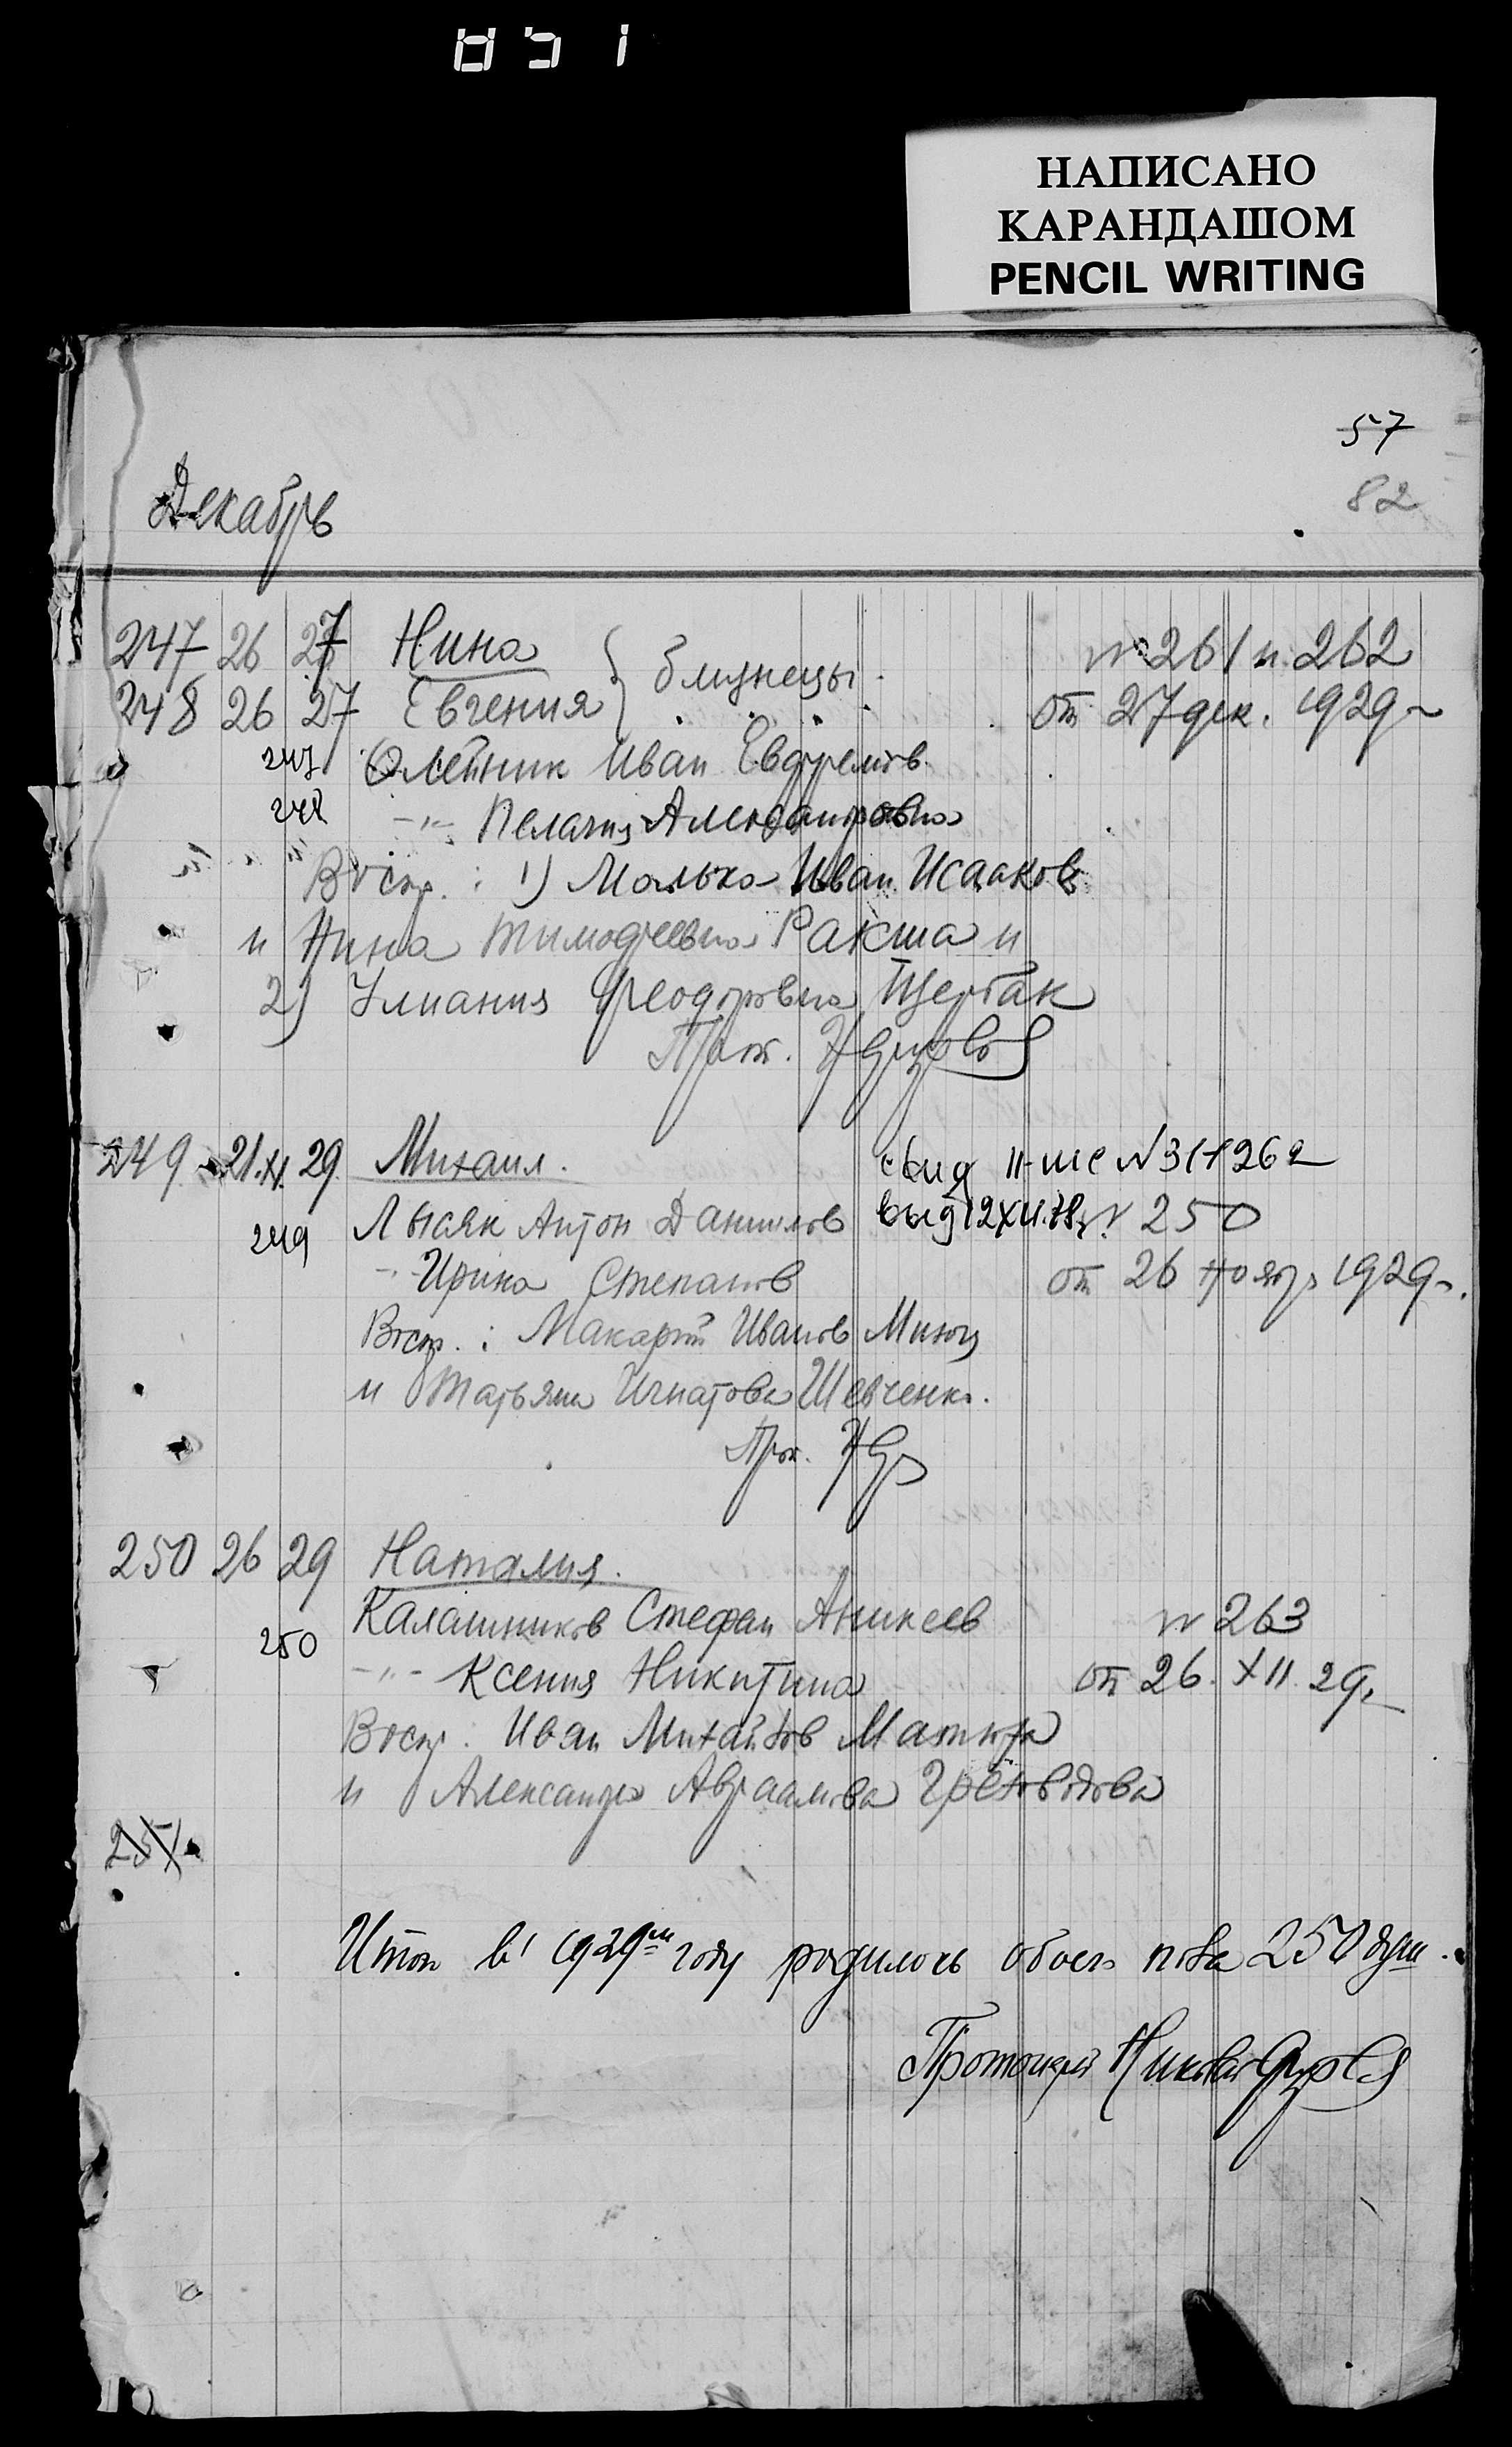 851
НАПИСАНО
КАРАНДАШОМ
PENCIL WRITING
57
82
Декабрь
247 26 27 Нина } близнецы. № 261 и 262
248 26 27 Евгения от 27 дек. 1929
247 Олейник Иван Евфремов.
248 -"- Пелагия Александровна
Воспр.: 1) Малько Иван Исааков
и Нина Тимофеевна Ракша и
2) Улиания Феодоровна Щербак
Прот.
249 21.XI. 29. Михаил. свид II-ше № 311262
249 Лысяк Антон Данилов выд 12 XII. № 250
-"- Ирина Степанов от 26 ноябр 1929.
Воспр.: Макарий Иванов
и Татьяна Игнатова Шевченко.
Прот.
250 26 29 Наталия.
Калашников Стефан Аникеев № 263
250
-"- Ксения Никитина от 26. XII. 29.
Воспр. Иван Михайлов
и Александра Авраамова
251
Итого в 1929м году родилось обоего пола 250 душ.
Протоиерей Николай